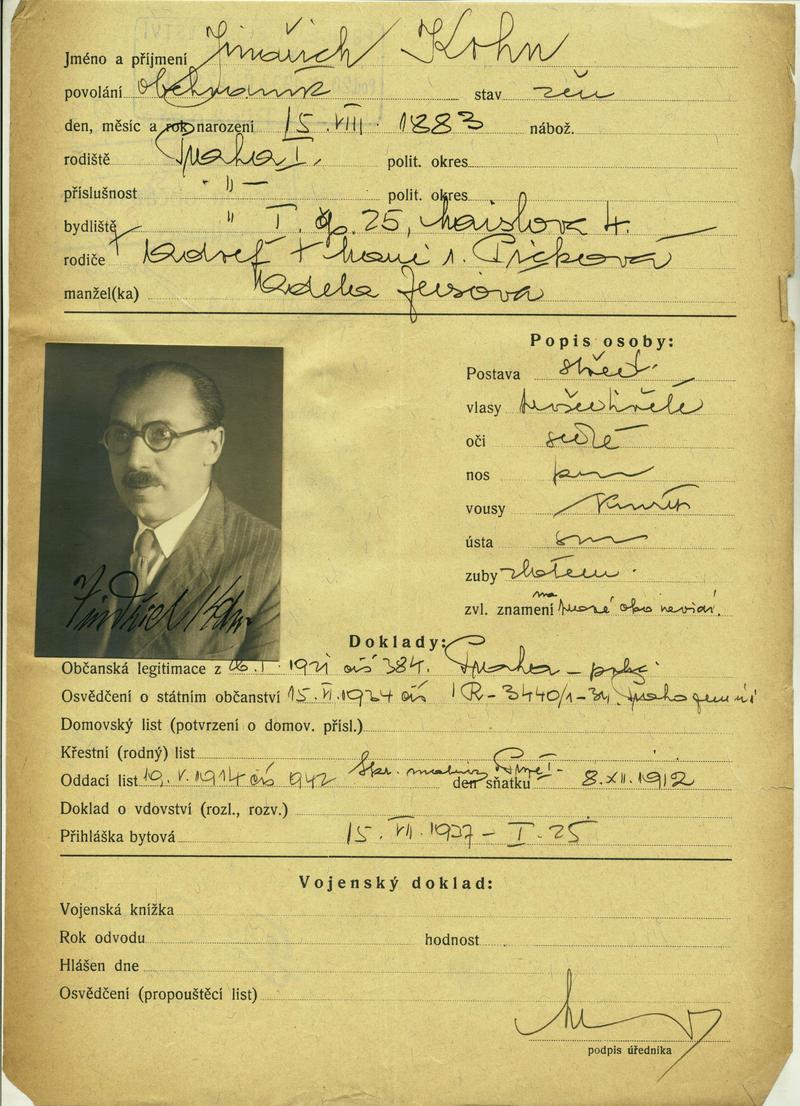 Jméno a příjmení Jindřich Kohn
povolání obchodník stav žen
den, měsíc a rok narození 15. VIII. 1883 nábož.
rodiště Praha I. polit. okres
příslušnost " polit. okres
bydliště " I. čp. 25, Maislova 4.
rodiče Adolf + Marie r. Picková
manžel(ka)
Popis osoby:
Postava střed.
vlasy
oči šedé
nos
vousy knír
ústa
zuby zlatem
zvl. znamení na pravé oko nevidí.
Jindřich Kohn
Doklady:
Občanská legitimace z 1921 čís 384. Praha
Osvědčení o státním občanství 15. VI. 1934 čís
Domovský list (potvrzení o domov. přísl.)
Křestní (rodný) list
Oddací list 19. V. 1914 čís 942 den sňatku 8. XII. 1912
Doklad o vdovství (rozl., rozv.)
Přihláška bytová 15. VII. 1937 – I. 25
Vojenský doklad:
Vojenská knížka
Rok odvodu hodnost
Hlášen dne
Osvědčení (propouštěcí list)
podpis úředníka